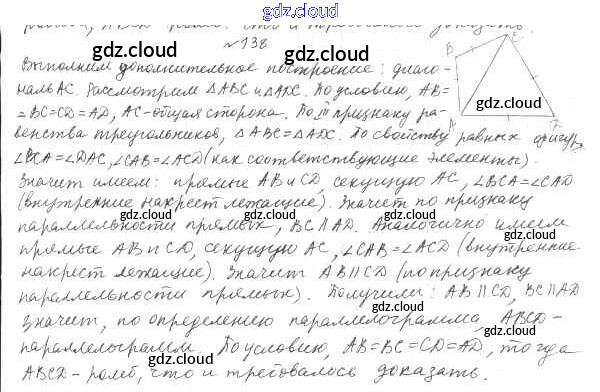 gdz.cloud
равносл, что и требовалось доказать.
№138
Выполним дополнительное построение: диаго-
наль AC. Рассмотрим △ABC и △ADC. По условию, AB=
=BC=CD=AD, AC-общая сторона. По III признаку ра-
венства треугольников, △ABC=△ADC. По свойству равных фигур,
∠BCA=∠DAC, ∠CAB=∠ACD (как соответствующие элементы).
Значит имеем: прямые AB и CD, секущую AC, ∠BCA=∠CAD
(внутренние накрест лежащие). Значит по признаку
параллельности прямых, BC∥AD. Аналогично имеем
прямые AB и CD, секущую AC, ∠CAB=∠ACD (внутренние
накрест лежащие). Значит AB∥CD (по признаку
параллельности прямых). Получили: AB∥CD, BC∥AD
значит, по определению параллелограмма, ABCD-
параллелограмм. По условию, AB=BC=CD=AD, тогда
ABCD-ромб, что и требовалось доказать.
B C
A
gdz.cloud
gdz.cloud
gdz.cloud
gdz.cloud
gdz.cloud
gdz.cloud
gdz.cloud
gdz.cloud
gdz.cloud
gdz.cloud
gdz.cloud